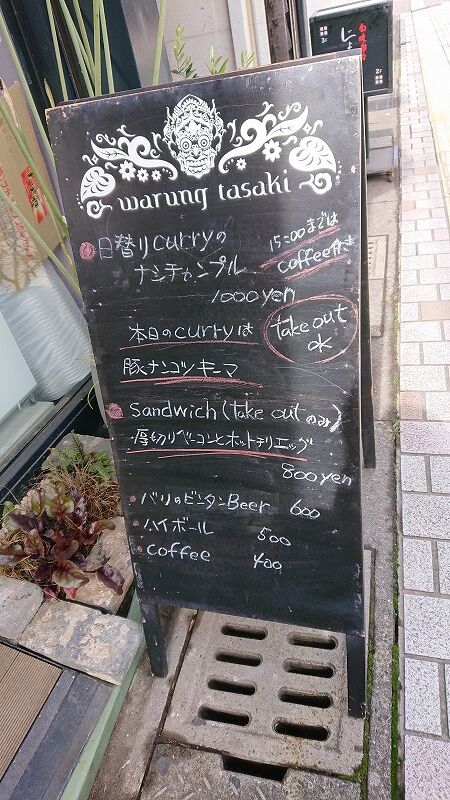 warung tasaki
日替りcurryの
ナシチャンプル
15:00までは
coffee付き
1000yen
本日のcurryは
take out
ok
豚ナンコツキーマ
Sandwich(take outのみ)
厚切りベーコンとホットチリエッグ
800yen
・バリのビンタンBeer 600
・ハイボール 500
・coffee 400